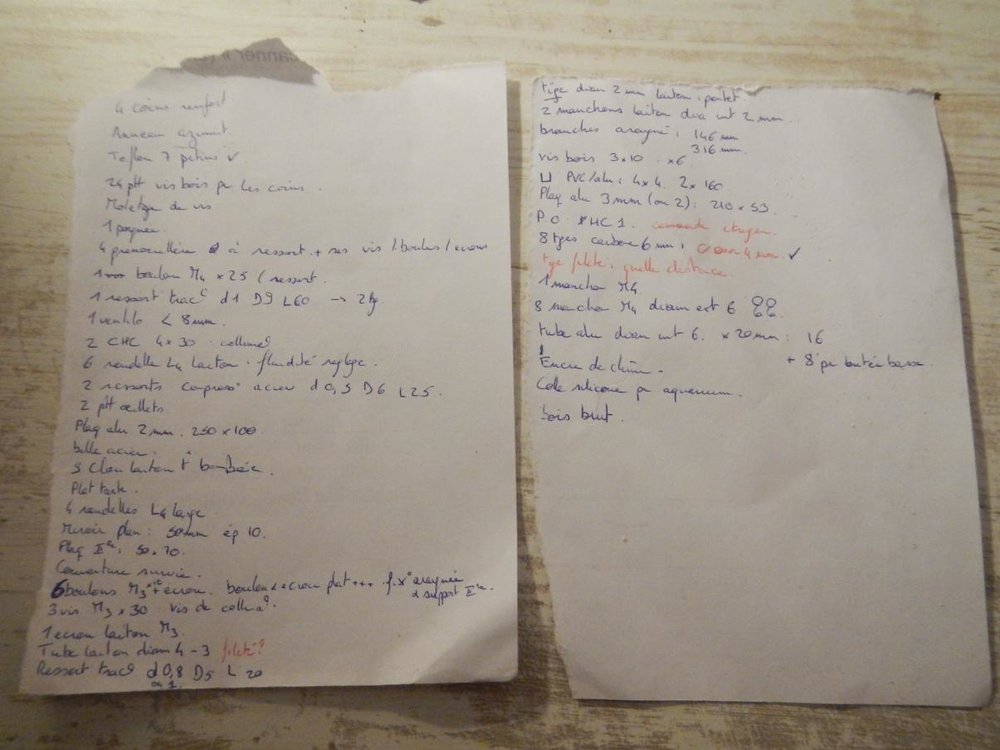 4 coins renfort
Anneau azimut.
Teflon 7 patins ✓
24 ptt vis bois pr les coins.
Moletage de vis
1 poignée
4 genouillère à ressort + ses vis / boulons / ecrous
1 boulon M4 x 25 / ressort.
1 ressort trac° d1 D9 L60 → 2kg
1 ventilo < 8 mm.
2 CHC 4 x 30 collima°
6 rondelle L4 laiton : fluidité reglage.
2 ressorts compress° acier d 0,5 D6 L25.
2 ptt œillets.
Plaq alu 2 mm. 250 x 100.
bille acier.
3 Clou laiton tt bombée.
Plat tarte.
4 rondelles L4 large
Miroir plan : 50mm ép 10.
Plaq IIre : 50 x 70.
Couverture survie.
6 boulons M3 x 10 + ecrou. boulon & ecrou plat +++ fix° araignée
& support IIre.
3 vis M3 x 30 vis de collima°.
1 ecrou laiton M3
Tube laiton diam 4 - 3 fileté ?
Ressort trac° d 0,8 D5 L 20
ou 1
tige diam 2 mm laiton :
2 manchons laiton diam int 2 mm.
branches araignée : 146 mm
316 mm.
vis bois 3x10 x6
U PVC/alu : 4 x 4. 2 x 160
Plaq alu 3mm (ou 2) : 210 x 53
P.O. PHC 1. commande
8 tiges carbone 6 mm : 4 mm. ✓
tige fileté : quelle distance
1 manchon M4
8 manchon M4 diam ext 6
tube alu diam int 6. x 20 mm : 16
+ 8 pr embase
Encre de chine.
Colle silicone pr aquarium.
bois brut.